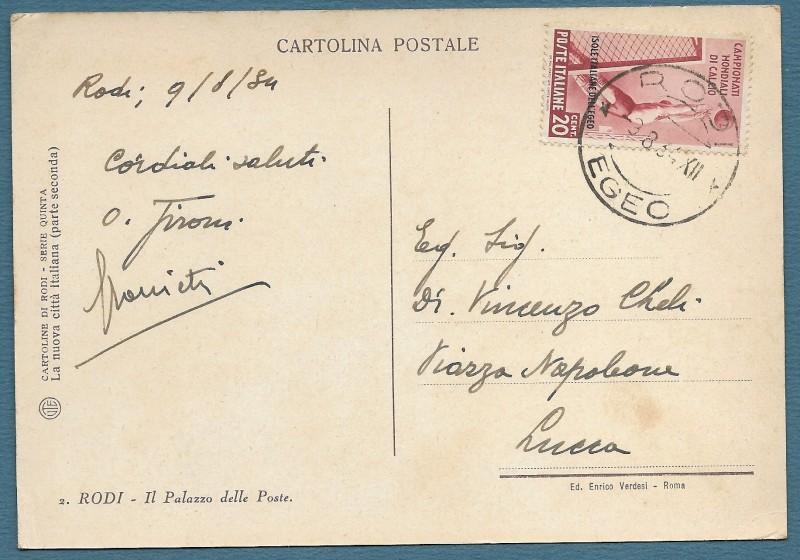 CARTOLINA POSTALE
Rodi, 9/8/34
Cordiali saluti
O. Tironi
CAMPIONATI
MONDIALI
DI CALCIO
ISOLE ITALIANE DELL'EGEO
POSTE ITALIANE
20
CENT
RODI
9.8.34.XII
EGEO
Eg. Sig.
Di. Vincenzo Cheli
Piazza Napoleone
Lucca
Ed. Enrico Verdesi - Roma
CARTOLINE DI RODI - SERIE QUINTA
La nuova città italiana (parte seconda)
2. RODI - Il Palazzo delle Poste.